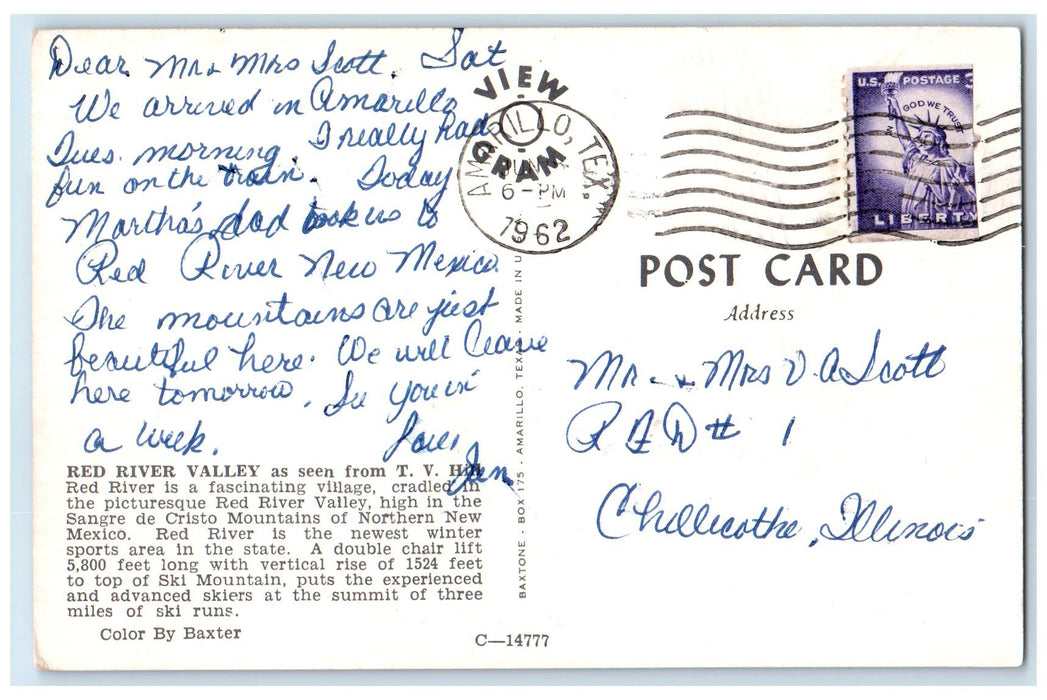 Dear Mr & Mrs Scott. Sat
We arrived in Amarillo
Tues. morning. I really had
fun on the train. Today
Martha's dad took us to
Red River New Mexico.
The mountains are just
beautiful here. We will leave
here tomorrow. See you in
a week.
Love,
RED RIVER VALLEY as seen from T. V. Hill
Red River is a fascinating village, cradled in
the picturesque Red River Valley, high in the
Sangre de Cristo Mountains of Northern New
Mexico. Red River is the newest winter
sports area in the state. A double chair lift
5,800 feet long with vertical rise of 1524 feet
to top of Ski Mountain, puts the experienced
and advanced skiers at the summit of three
miles of ski runs.
Color By Baxter
C—14777
VIEW
GRAM
AMARILLO, TEX.
6 - PM
1962
BAXTONE · BOX 175 · AMARILLO, TEXAS · MADE IN U
U.S. POSTAGE
IN GOD WE TRUST
LIBERTY
POST CARD
Address
Mr. & Mrs V. A Scott
R F D # 1
Chillicothe, Illinois